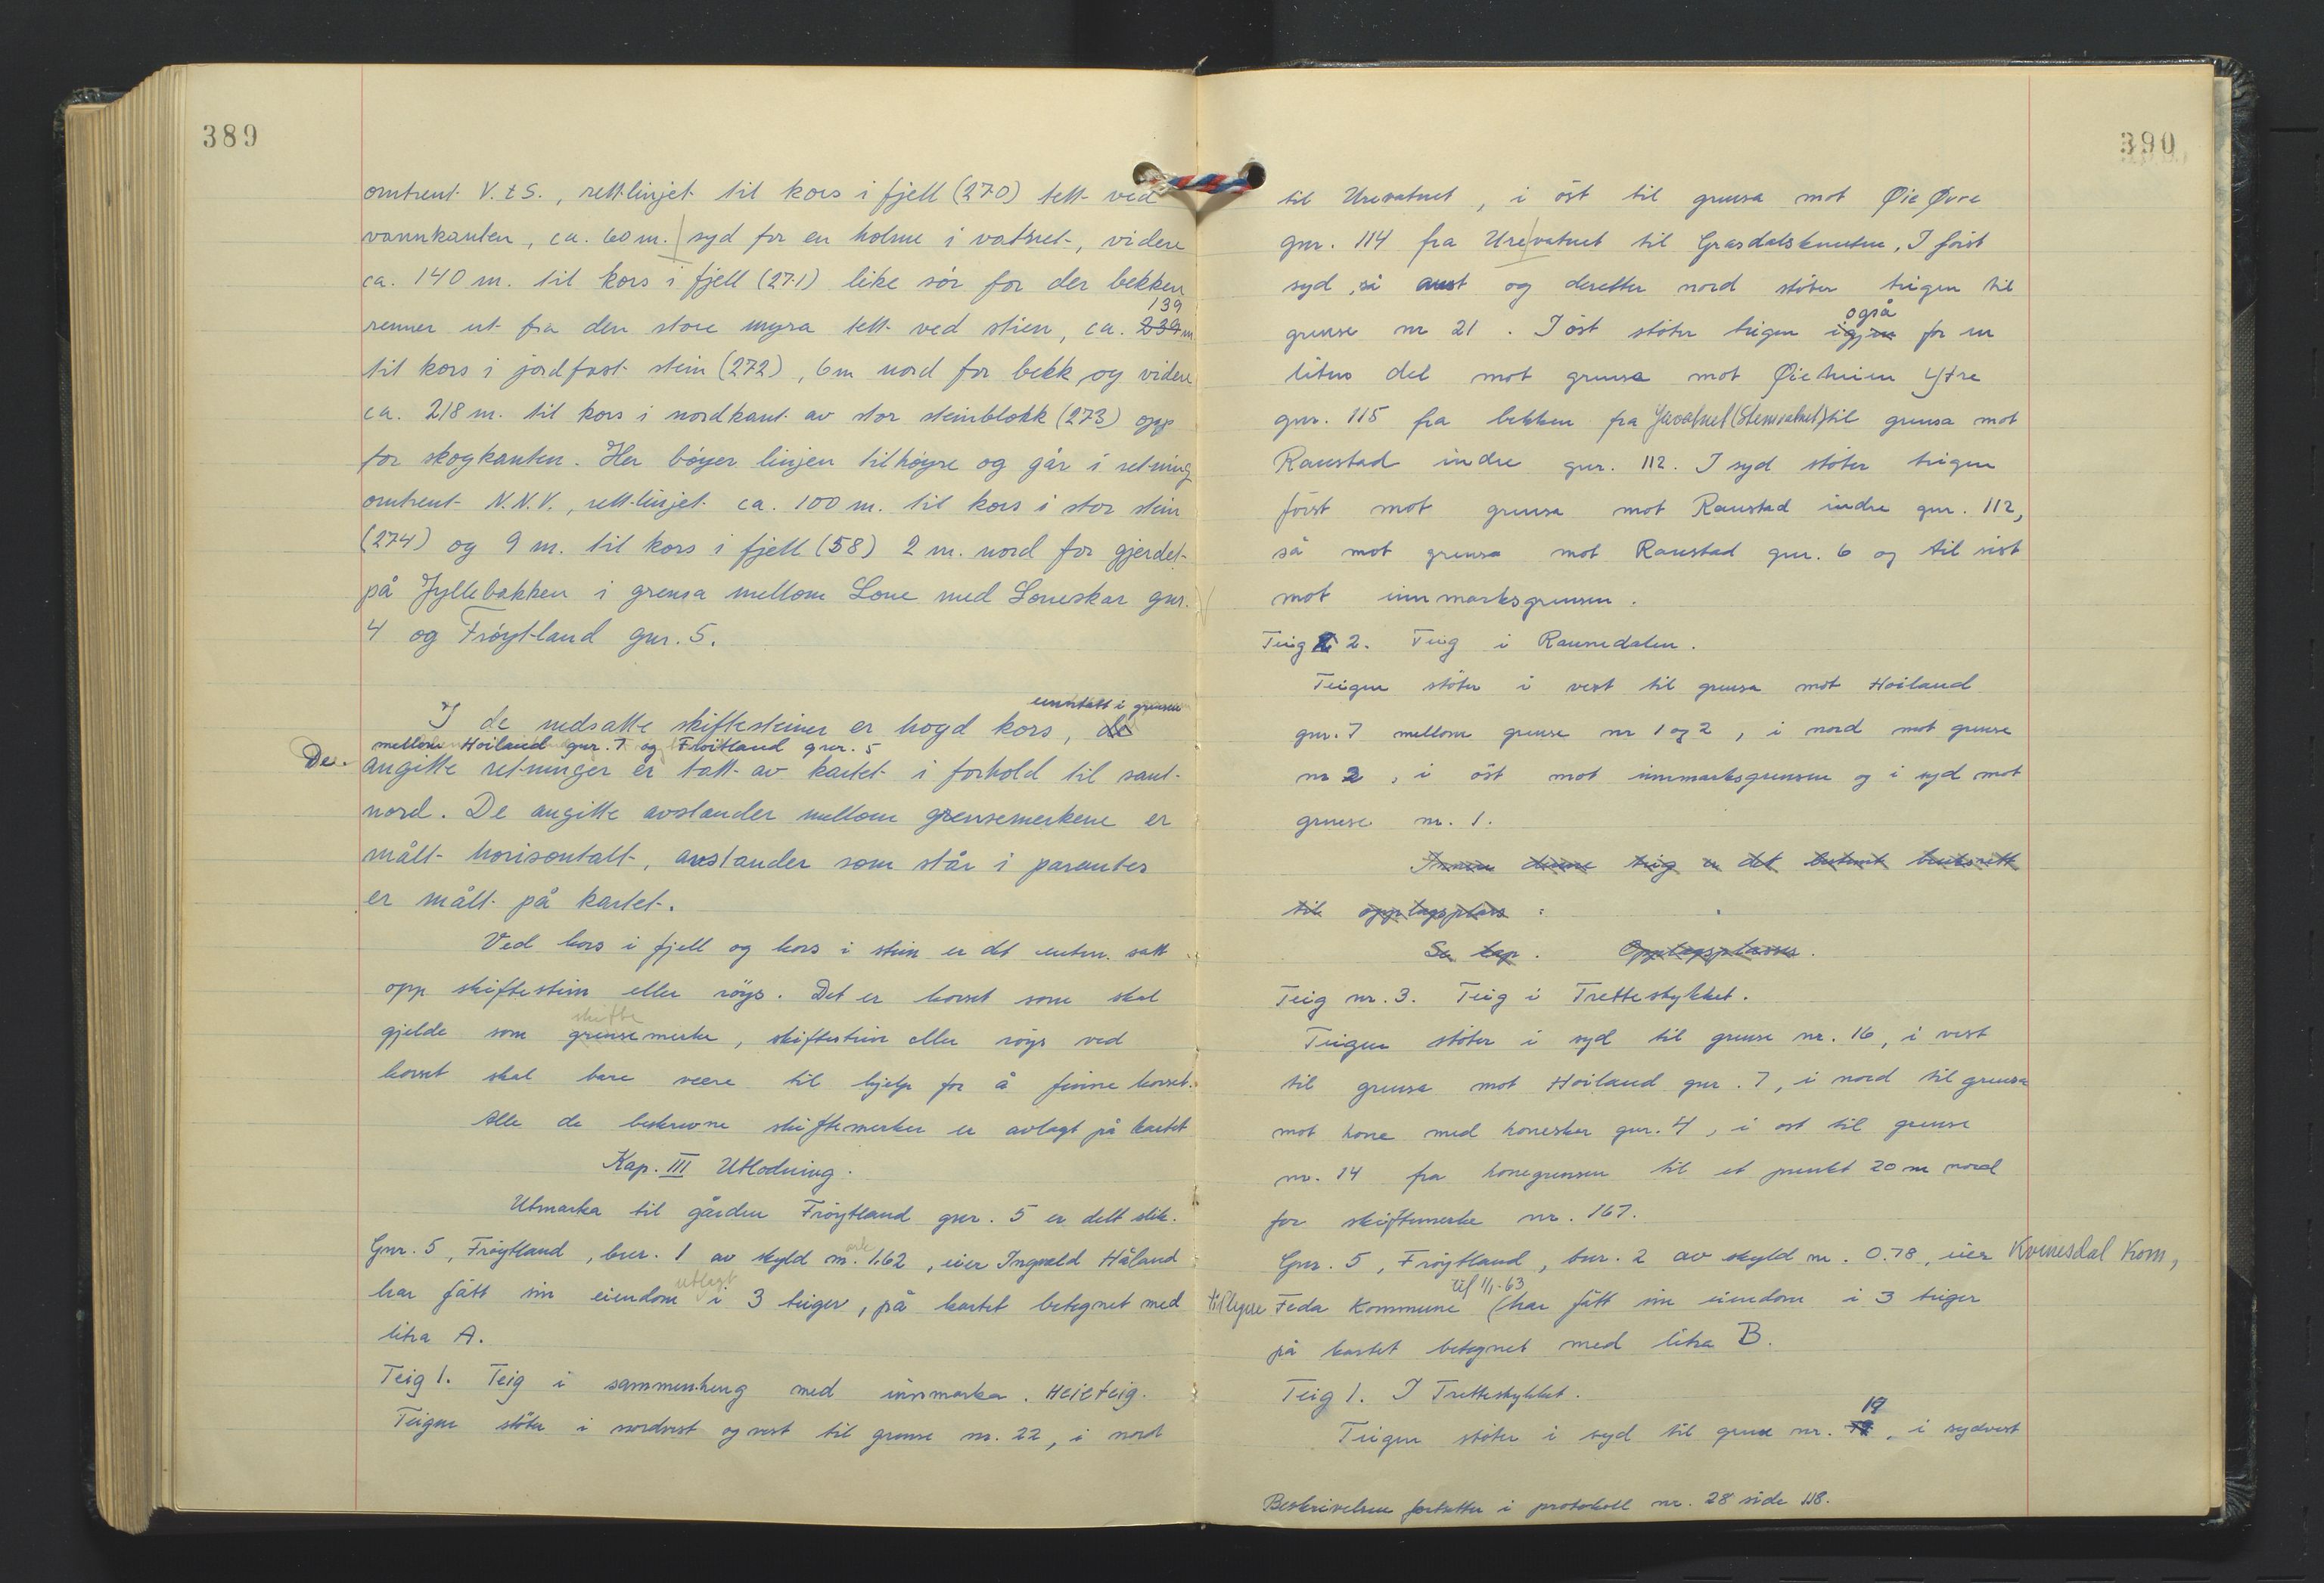 389
omtrent V.t.S., rett-linjet til kors i fjell (270) tett ved
vannkanten, ca. 60 m. syd for en holme i vatnet, videre
ca. 140 m. til kors i fjell (271) like sör for der bekken
139
renner ut fra den store myra tett ved stien, ca. 239 m
til kors i jordfast stein (272), 6 m nord for bekk og videre
ca. 218 m. til kors i nordkant av stor steinblokk (273) opp
for skogkanten. Her böyer linjen til höyre og går i retning
omtrent N.N.V., rett-linjet ca. 100 m. til kors i stor stein
(274) og 9 m. til kors i fjell (58) 2 m. nord for gjerdet
på Jyllebakken i grensa mellom Lone med Loneskar gnr.
4 og Fröytland gnr. 5.
unntatt i grensen
I de nedsatte skiftesteiner er hogd kors, de
mellom Höiland gnr. 7 og Flöitland gnr. 5
De
angitte retninger er tatt av kartet i forhold til sant
nord. De angitte avstander mellom grensemerkene er
målt horisontalt, avstander som står i parantes
er målt på kartet.
Ved kors i fjell og kors i stein er det enten satt
opp skiftestein eller röys. Det er korset som skal
skifte
gjelde som grensemerke, skiftestein eller röys ved
korset skal bare være til hjelp for å finne korset.
Alle de beskrevne skiftemerker er avlagt på kartet
Kap. III Utlodning.
Utmarka til gården Fröytland gnr. 5 er delt slik.
ark
Gnr. 5, Fröytland, bnr. 1 av skyld m. 1.62, eier Ingvald Håland
utlagt
har fått sin eiendom i 3 teiger, på kartet betegnet med
litra A.
Teig 1. Teig i sammenheng med innmarka. Heieteig.
Teigen stöter i nordvest og vest til grense nr. 22, i nord
390
til Urevatnet, i öst til grensa mot Øie Øvre
gnr. 114 fra Urevatnet til Grasdalsknuten, I först
syd, så aust og deretter nord stöter teigen til
også
grense nr 21. I öst stöter teigen igjen for en
liten del mot grensa mot Øieheien Ytre
gnr. 115 fra bekken fra (Stemvatnet) til grensa mot
Raustad indre gnr. 112. I syd stöter teigen
först mot grensa mot Raustad indre gnr. 112,
så mot grensa mot Raustad gnr. 6 og til sist
mot innmarksgrensen.
Teig 2. Teig i Raunedalen.
Teigen stöter i vest til grensa mot Höiland
gnr. 7 mellom grense nr 1 og 2, i nord mot grense
nr 2, i öst mot innmarksgrensen og i syd mot
grense nr. 1.
Innen denne teig er det bestemt bruksrett
til opplagsplass :
Se kap. Opplagsplasser.
Teig nr. 3. Teig i Trettestykket.
Teigen stöter i syd til grense nr. 16, i vest
til grensa mot Höiland gnr. 7, i nord til grensa
mot Lone med Loneskar gnr. 4, i öst til grense
nr. 14 fra Lonegrensen til et punkt 20 m nord
for skiftemerke nr. 167.
Gnr. 5, Fröytland, bnr. 2 av skyld m. 0.78, eier Kvinesdal Kom,
til 1/1-63
tidligere Feda Kommune (har fått sin eiendom i 3 teiger
på kartet betegnet med litra B.
Teig 1. I Trettestykket.
19
Teigen stöter i syd til grense nr. , i sydvest
Beskrivelsen fortsetter i protokoll nr. 28 side 118.